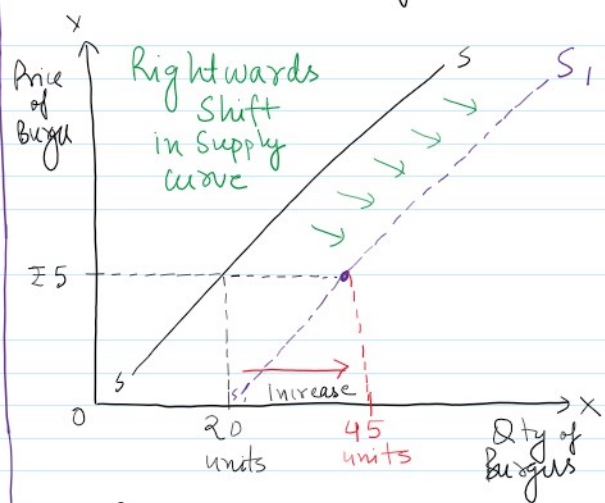 Y
Price
of
Burger
Rightwards
Shift
in Supply
Curve
S
S1
₹5
S
S1
Increase
0
20
units
45
units
X
Qty of
Burgers